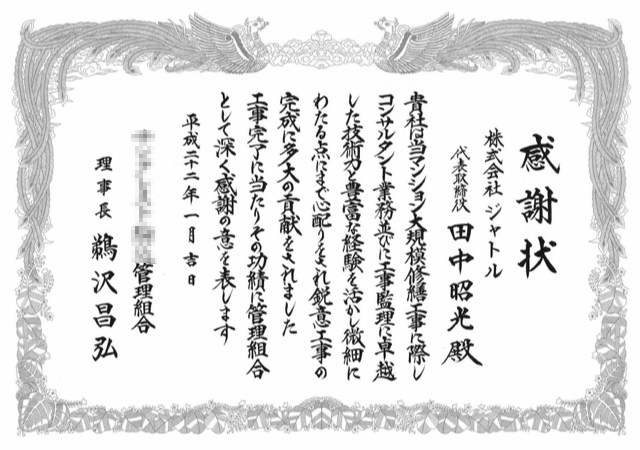 感謝状
株式会社 ジャトル
代表取締役 田中昭光殿
貴社は当マンション大規模修繕工事に際し
コンサルタント業務並びに工事監理に卓越
した技術力と豊富な経験を活かし微細に
わたる点にまで心配りをされ鋭意工事の
完成に多大の貢献をされました
工事完了に当たりその功績に管理組合
として深く感謝の意を表します
平成二十二年一月吉日
管理組合
理事長 鵜沢昌弘